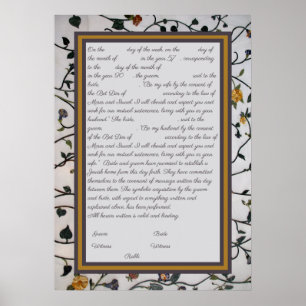 On the day of the week, on the day of
the month of in the year 57 , corresponding
to the day of the month of
in the year 20 , the groom, said to the
bride, , "Be my wife by the consent of
the Bet Din of according to the law of
Moses and Israel. I will cherish and respect you and
work for our mutual sustenance, living with you as your
husband." The bride, , said to the
groom, , "Be my husband by the consent
of the Bet Din of according to the law of
Moses and Israel. I will cherish and respect you and
work for our mutual sustenance, living with you as your
wife." Bride and groom have promised to establish a
Jewish home from this day forth. They have committed
themselves to the covenant of marriage written this day
between them. The symbolic acquisition by the groom
and bride, with regard to everything written and
explained above, has been performed.
All herein written is valid and binding.
Groom Bride
Witness Witness
Rabbi